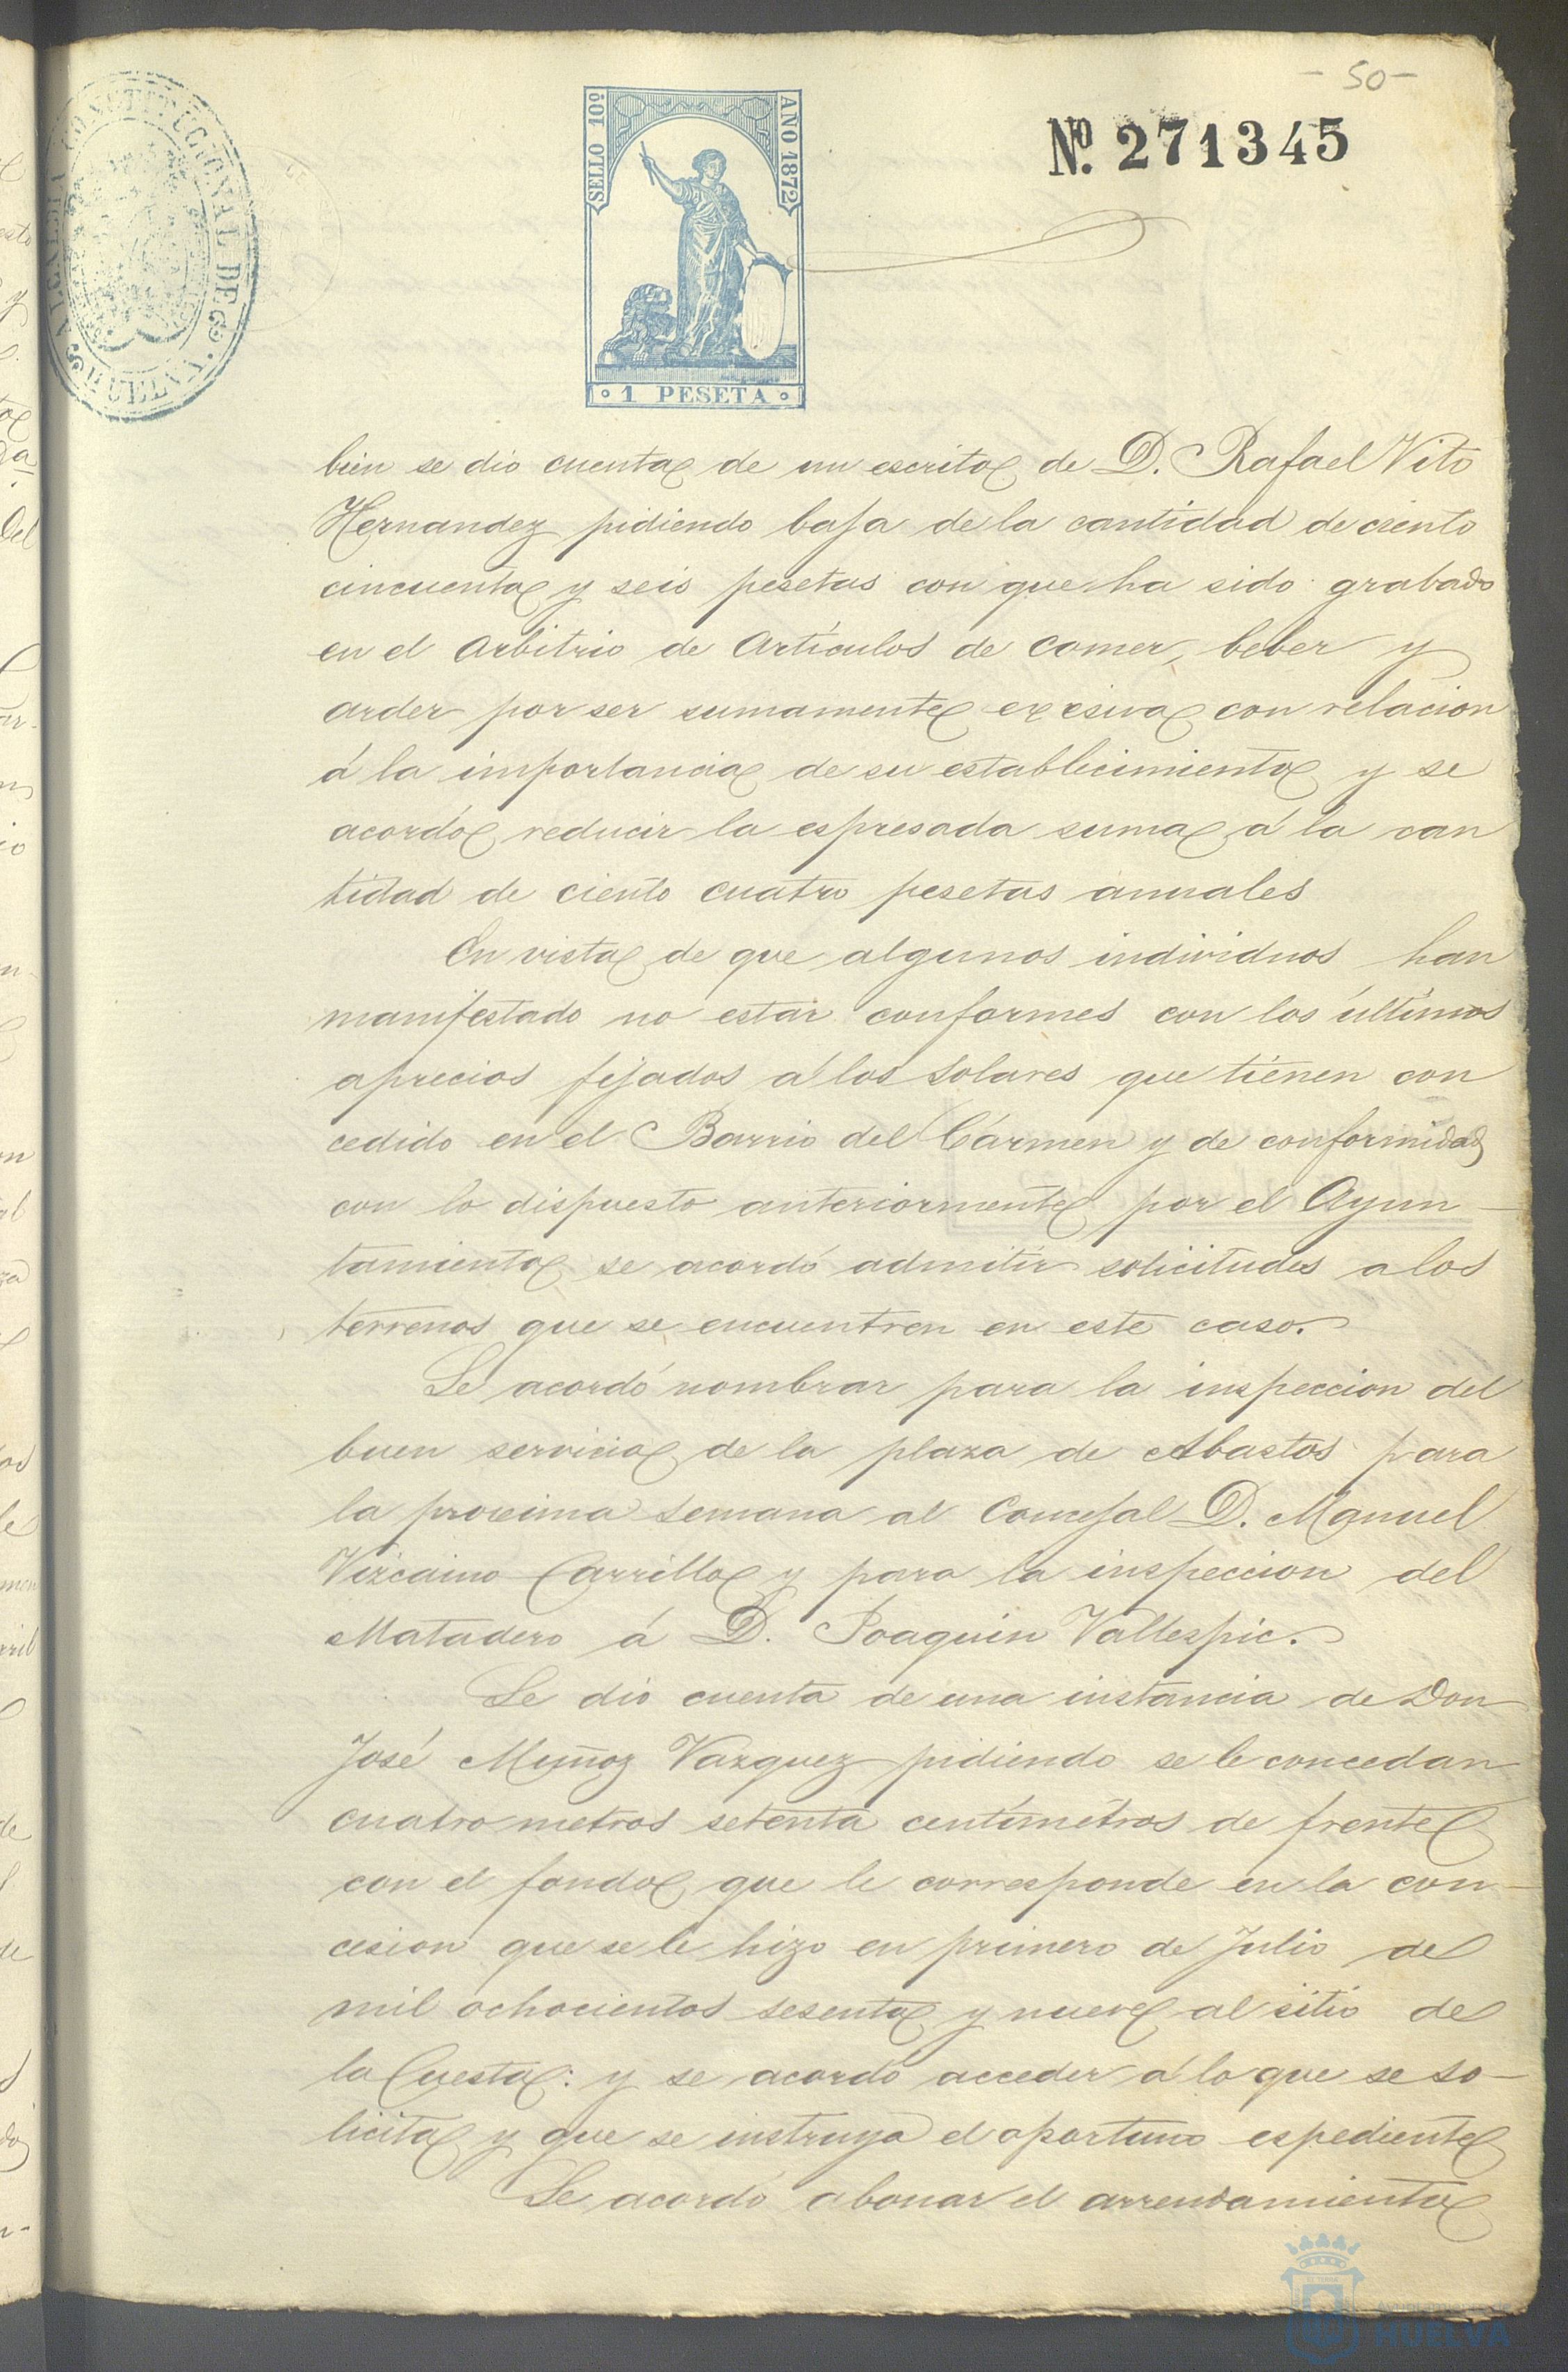 - 50 -
Nº. 271345
SELLO 10º
AÑO 1872
1 PESETA
CONSTITUCIONAL DE
HUELVA
bien se dio cuenta de un escrito de D. Rafael Vito
Hernandez pidiendo baja de la cantidad de ciento
cincuenta y seis pesetas con que ha sido grabado
en el arbitrio de Artículos de comer, beber y
arder por ser sumamente excesiva con relacion
á la importancia de su establecimiento y se
acordó reducir la espresada suma á la can
tidad de ciento cuatro pesetas anuales
En vista de que algunos individuos han
manifestado no estar conformes con los últimos
aprecios fijados á los solares que tienen con
cedido en el Barrio del Cármen y de conformidad
con lo dispuesto anteriormente por el Ayun
tamiento se acordó admitir solicitudes a los
terrenos que se encuentren en este caso.
Se acordó nombrar para la inspeccion del
buen servicio de la plaza de Abastos para
la proxima semana al Concejal D. Manuel
Vizcaino Carrillo y para la inspeccion del
Matadero á D. Joaquin Vallespic.
Se dio cuenta de una instancia de Don
José Muñoz Vazquez pidiendo se le concedan
cuatro metros setenta centímetros de frente
con el fondo que le corresponde en la con-
cesion que se le hizo en primero de Julio de
mil ochocientos sesenta y nueve al sitio de
la Cuesta: y se acordó acceder á lo que se so-
licita y que se instruya el oportuno espediente
Se acordó abonar el arrendamiento
AYUNTAMIENTO DE
HUELVA